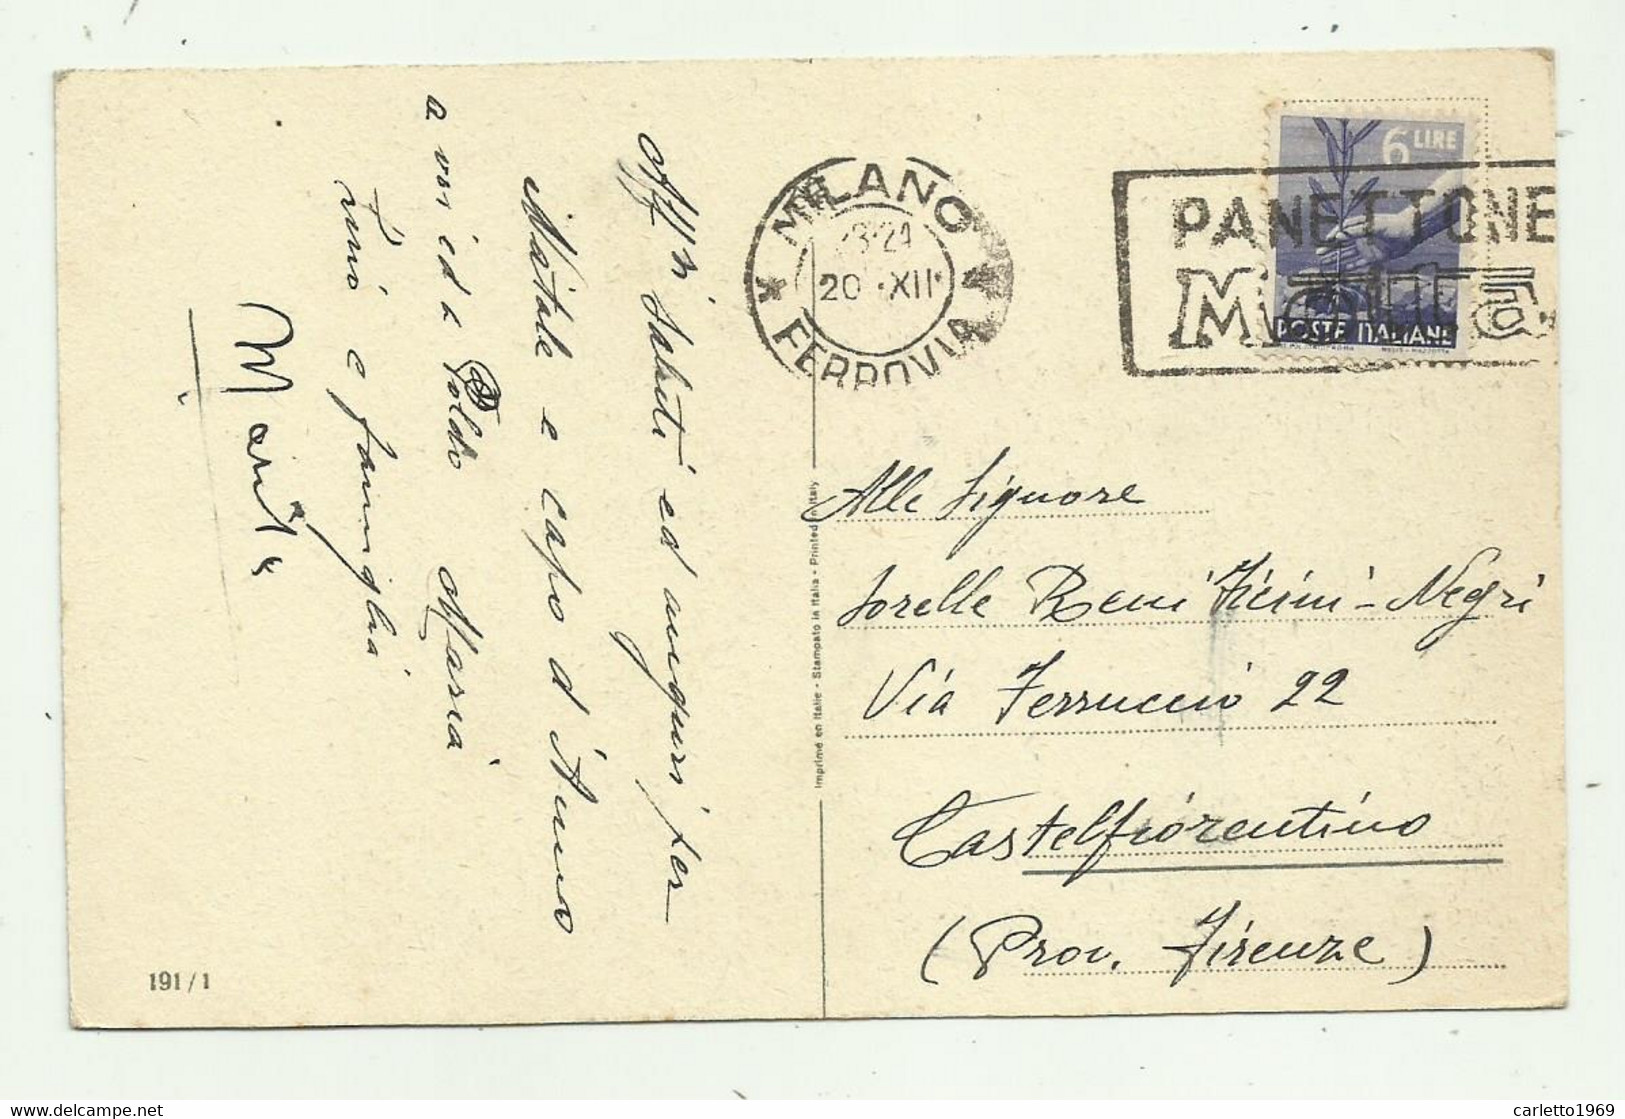 Aff/ni Saluti ed auguri per
Natale e capo d'Anno
a voi ed a Poldo Maria
Nino e famiglia
Maria
191/1
Imprimé en Italie - Stampato in Italia - Printed in Italy
MILANO
FERROVIA
23-24
20 · XII ·
PANETTONE
Motta
6 LIRE
POSTE ITALIANE
Alle Signore
Sorelle Reni Ficini-Negri
Via Ferruccio 22
Castelfiorentino
(Prov. Firenze)
carletto1969